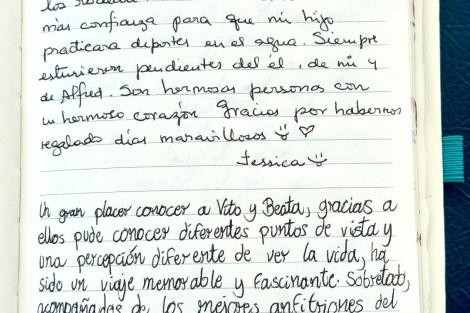 los
más confianza para que mi hijo
practicara deportes en el agua. Siempre
estuvieron pendientes del él, de mi y
de Alfred. Son hermosas personas con
un hermoso corazón Gracias por habernos
regalado días maravillosos
Jessica
Un gran placer conocer a Vito y Beata, gracias a
ellos pude conocer diferentes puntos de vista y
una percepción diferente de ver la vida, ha
sido un viaje memorable y fascinante. Sobretodo,
acompañadas de los mejores anfitriones del